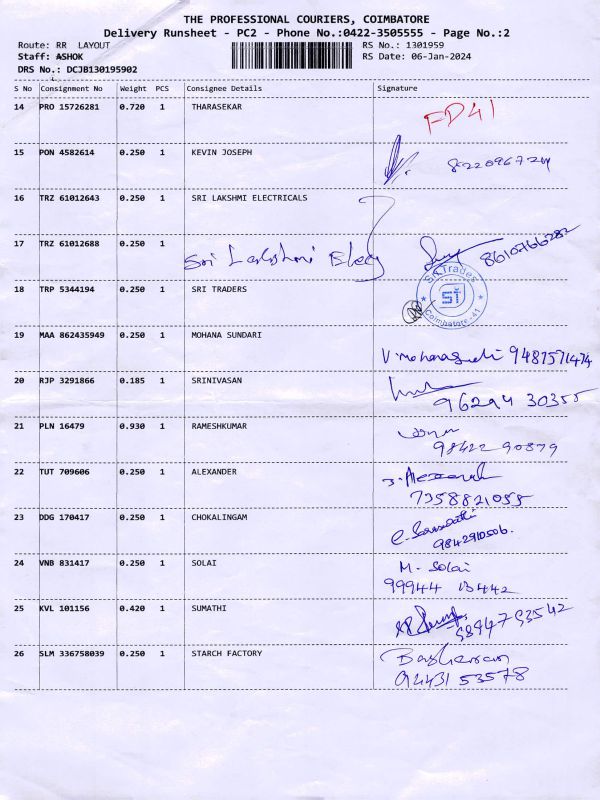 THE PROFESSIONAL COURIERS, COIMBATORE
Delivery Runsheet - PC2 - Phone No.:0422-3505555 - Page No.:2
Route: RR LAYOUT RS No.: 1301959
Staff: ASHOK RS Date: 06-Jan-2024
DRS No.: DCJB130195902
S No Consignment No Weight PCS Consignee Details Signature
14 PRO 15726281 0.720 1 THARASEKAR FD41
15 PON 4582614 0.250 1 KEVIN JOSEPH
16 TRZ 61012643 0.250 1 SRI LAKSHMI ELECTRICALS
17 TRZ 61012688 0.250 1 Sri Lakshmi 8610766282
18 TRP 5344194 0.250 1 SRI TRADERS
Trades
ST
Coimbatore-41
19 MAA 862435949 0.250 1 MOHANA SUNDARI
9487571474
20 RJP 3291866 0.185 1 SRINIVASAN
96294 30355
21 PLN 16479 0.930 1 RAMESHKUMAR
98422 90879
22 TUT 709606 0.250 1 ALEXANDER
7358821055
23 DDG 170417 0.250 1 CHOKALINGAM
9842910506.
24 VNB 831417 0.250 1 SOLAI M. Solai
99944 13442
25 KVL 101156 0.420 1 SUMATHI
9894793542
26 SLM 336758039 0.250 1 STARCH FACTORY
94431 53578